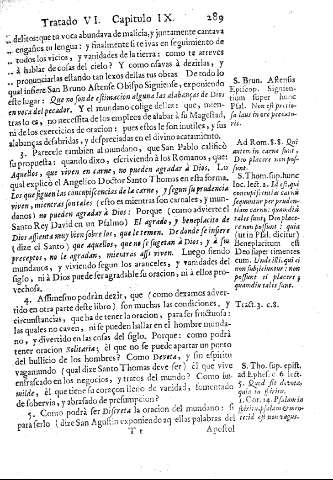 Tratado VI. Capitulo IX. 289
delitos: que tu voca abundava de malicia, y juntamente cantava
engaños tu lengua: y finalmente si te ivas en seguimiento de
todos los vicios, y vanidades de la tierra: como te atreves
à hablar de cosas del cielo? Y como osavas à dezirlas, y
pronunciarlas estando tan lexos dellas tus obras. De todo lo
qual infiere San Bruno Astense Obispo Signiense, exponiendo
este lugar: Que no son de estimacion alguna las alabanças de Dios
en voca del pecador. Y el mundano colige dellas: que, mien-
tras lo es, no necessita de los empleos de alabar à su Magestad,
ni de los exercicios de oracion: pues estos le son inutiles, y sus
alabanças desabridas, y despreciadas en el divino acatamiento.
3. Parecele tambien al mundano, que San Pablo calificò
su propuesta: quando dixo, escriviendo à los Romanos, que:
Aquellos, que viven en carne, no pueden agradar à Dios. Lo
qual explicò el Angelico Doctor Santo Thomas en esta forma.
Los que siguen las concupiscencias de la carne, y segun su prudencia
viven, mientras son tales (esto es mientras son carnales, y mun-
danos) no pueden agradar à Dios: Porque (como advierte el
Santo Rey David en un Psalmo) El agrado, y beneplacito de
Dios assienta muy bien sobre los, que le temen. De donde se infiere
(dize el Santo) que aquellos, que no se sugetan à Dios, y à su
preceptos, no le agradan, mientras assi viven. Luego siendo
mundanos, y viviendo segun los aranceles, y vanidades del
siglo, ni à Dios puede ser agradable su oracion, ni à ellos pro-
vechosa.
4. Assimesmo podràn dezir, que (como dexamos adver-
tido en otra parte deste libro) son muchas las condiciones, y
circunstancias, que ha de tener la oracion, para ser fructuosa:
las quales no caven, ni se pueden hallar en el hombre munda-
no, y divertido en las cosas del siglo. Porque: como podrà
tener oracion Solitaria; èl que no se puede apartar un punto
del bullicio de los hombres? Como Devota, y sin espiritu
vagamundo (qual dize Santo Thomas deve ser) èl que vive
enfrascado en los negocios, y tratos del mundo? Como hu-
milde, èl que tiene su coraçon lleno de vanidad, fomentado
de sobervia, y abrasado de presumpcion?
5. Como podrà ser Discreta la oracion del mundano: si
para serlo (dize San Agustin exponiendo aquellas palabras del
T t Apostol
S. Brun. Astensis
Episcop. Signien-
sium super hunc
Psal. Non est precio-
sa laus in ore peccato-
ris.
Ad Rom. 8. 8. Qui
autem in carne sunt,
Deo placere non pos-
sunt.
S. Thom. sup. hunc
loc. lect. 2. Id est qui
concupiscentias carnis
sequuntur per pruden-
tiam carnis: quamdiù
tales sunt, Deo place-
re non possunt: quia
(ut in Psal. dicitur)
Beneplacitum est
Deo super timentes
eum. Unde illi, qui ei
non subijciuntur: non
possunt ei placere,
quamdiù tales sunt.
Tract. 3. c. 8.
S. Tho. sup. epist.
ad Ephes. c. 6. lect.
5. Quod sit devota,
quia in spiritu.
1. Cor. 14. Psalam in
spiritu, psalam & men-
te: id est non vagus.